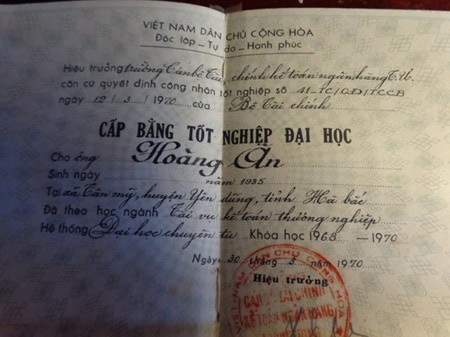 VIỆT NAM DÂN CHỦ CỘNG HÒA
Độc lập – Tự do – Hạnh phúc
Hiệu trưởng trường Cán bộ Tài chính kế toán ngân hàng T.Ư.
căn cứ quyết định công nhận tốt nghiệp số 41-TC/QĐ/TCCB
ngày 12/3/1970 của Bộ Tài chính
CẤP BẰNG TỐT NGHIỆP ĐẠI HỌC
Cho ông Hoàng Ân
Sinh ngày năm 1935
Tại xã Tân mỹ, huyện Yên dũng, tỉnh Hà bắc
Đã theo học ngành Tài vụ kế toán thương nghiệp
Hệ thống Đại học chuyên tu Khóa học 1968 — 1970
Ngày 30 tháng 3 năm 1970
Hiệu trưởng